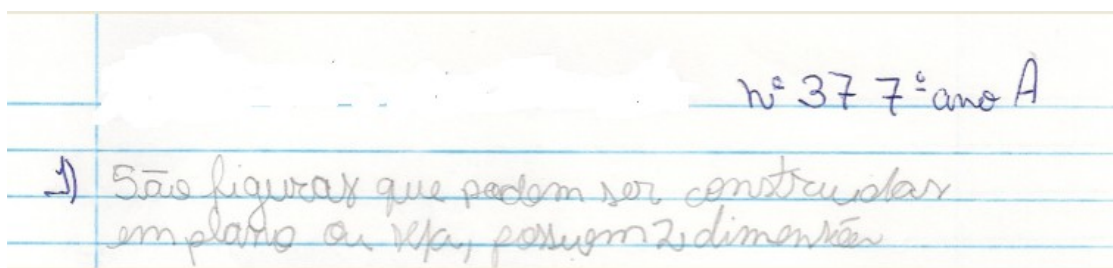 nº 37 7º ano A
1) São figuras que podem ser construidas
em plano ou seja, possuem 2 dimensões